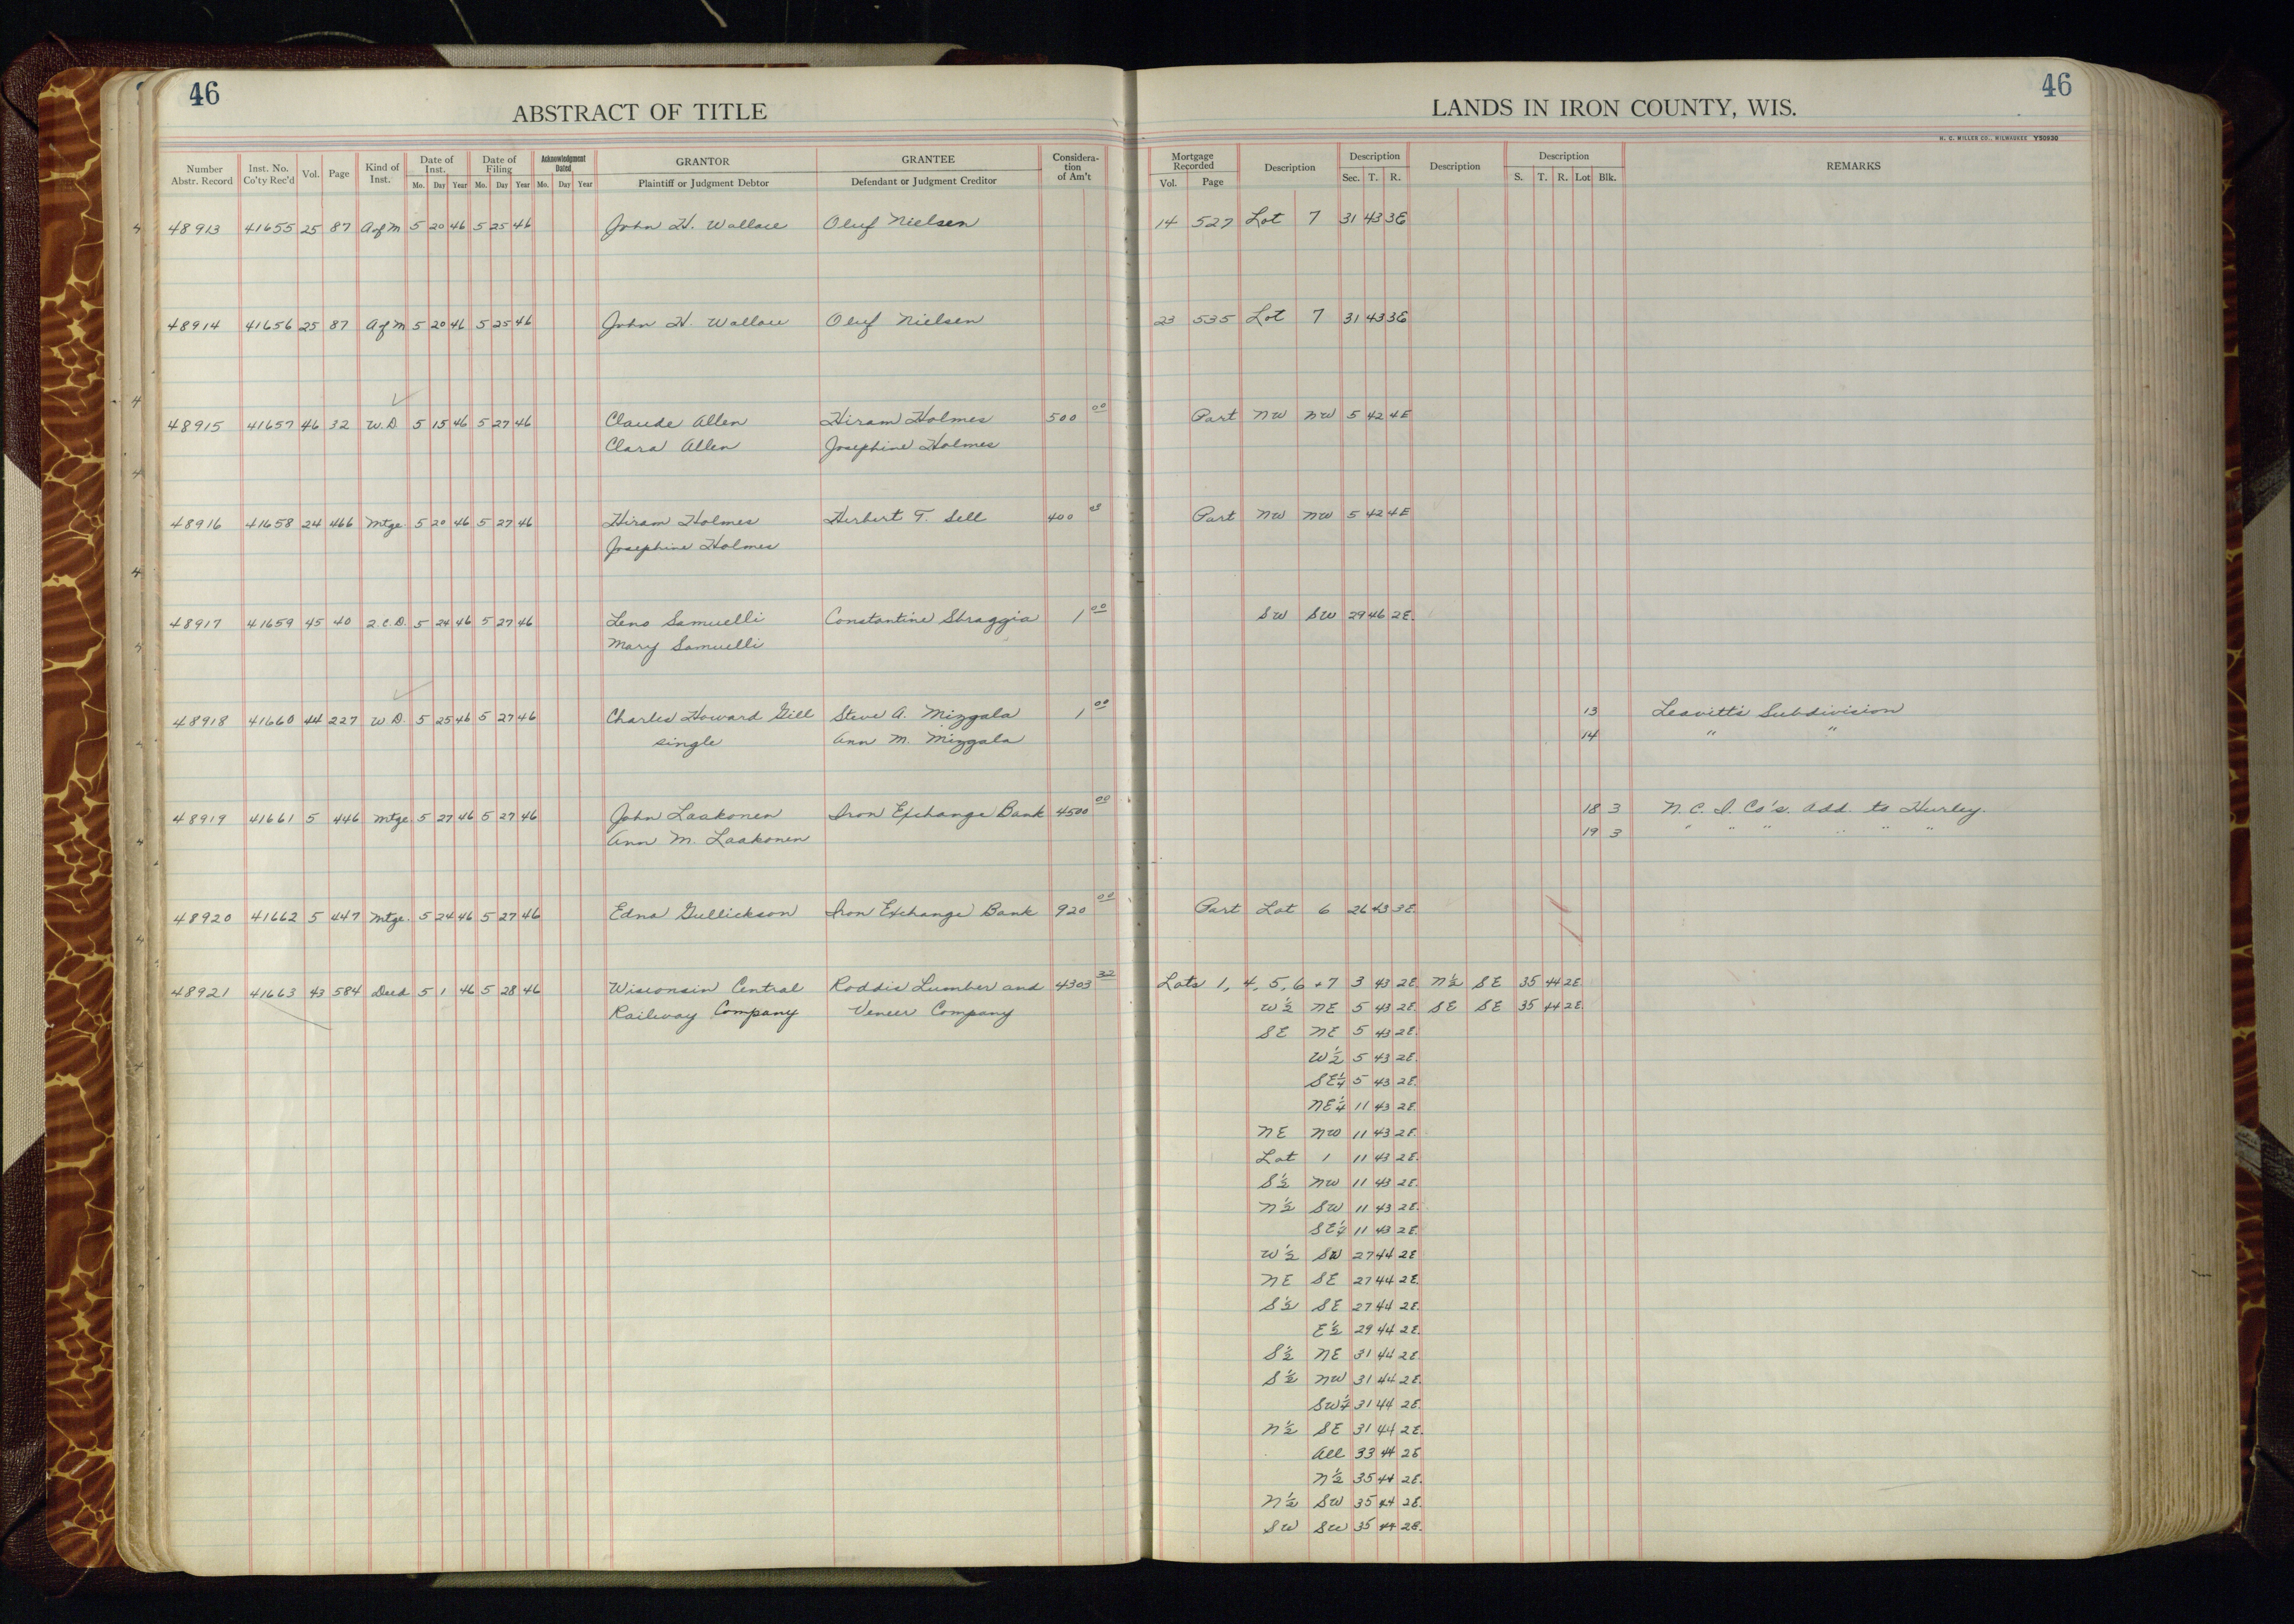 46
46
ABSTRACT OF TITLE
LANDS IN IRON COUNTY, WIS.
H. C. MILLER CO., MILWAUKEE Y50930
Number Abstr. Record Inst. No. Co'ty Rec'd Vol. Page Kind of Inst. Date of Inst. Mo. Day Year Date of Filing Mo. Day Year Acknowledgment Dated Mo. Day Year GRANTOR Plaintiff or Judgment Debtor GRANTEE Defendant or Judgment Creditor Considera-tion of Am't Mortgage Recorded Vol. Page Description Description Sec. T. R. Description Description S. T. R. Lot Blk. REMARKS
48913 41655 25 87 A of M 5 20 46 5 25 46 John H. Wallace Oluf Nielsen 14 527 Lot 7 31 43 3E
48914 41656 25 87 A of M 5 20 46 5 25 46 John H. Wallace Oluf Nielsen 23 535 Lot 7 31 43 3E
48915 41657 46 32 W.D. 5 15 46 5 27 46 Claude Allen Hiram Holmes 500 00 Part NW NW 5 42 4E
Clara Allen Josephine Holmes
48916 41658 24 466 Mtge. 5 20 46 5 27 46 Hiram Holmes Herbert T. Sell 400 Part NW NW 5 42 4E
Josephine Holmes
48917 41659 45 40 2.C.D. 5 24 46 5 27 46 Leno Samuelli Constantine Sbraggia 1 00 SW SW 29 46 2E.
Mary Samuelli
48918 41660 44 227 W.D. 5 25 46 5 27 46 Charles Howard Gill Steve A. Mizgala 1 00 13 Leavitt's Subdivision
single Ann M. Mizgala 14 " "
48919 41661 5 446 Mtge. 5 27 46 5 27 46 John Laakonen Iron Exchange Bank 4500 00 18 3 N. C. I. Co's. Add. to Hurley.
Ann M. Laakonen 19 3 " " " " " "
48920 41662 5 447 Mtge. 5 24 46 5 27 46 Edna Gullickson Iron Exchange Bank 920 00 Part Lot 6 26 43 3E.
48921 41663 43 584 Deed 5 1 46 5 28 46 Wisconsin Central Roddis Lumber and 4303 32 Lots 1, 4, 5, 6 + 7 3 43 2E N½ SE 35 44 2E
Railway Company Veneer Company W½ NE 5 43 2E SE SE 35 44 2E
SE NE 5 43 2E.
W½ 5 43 2E.
SE¼ 5 43 2E.
NE¼ 11 43 2E.
NE NW 11 43 2E.
Lot 1 11 43 2E.
S½ NW 11 43 2E.
N½ SW 11 43 2E.
SE¼ 11 43 2E.
W½ SW 27 44 2E
NE SE 27 44 2E.
S½ SE 27 44 2E.
E½ 29 44 2E.
S½ NE 31 44 2E.
S½ NW 31 44 2E.
SW¼ 31 44 2E.
N½ SE 31 44 2E.
All 33 44 2E
N½ 35 44 2E.
N½ SW 35 44 2E.
SW SW 35 44 2E.